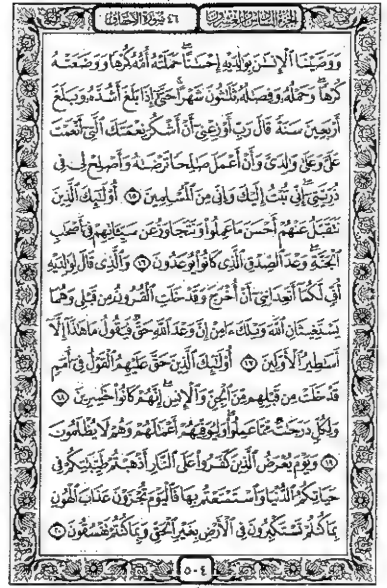 الجزء السادس والعشرون
٤٦ سورة الأحقاف
وَوَصَّيْنَا ٱلْإِنسَٰنَ بِوَٰلِدَيْهِ إِحْسَٰنًا ۖ حَمَلَتْهُ أُمُّهُۥ كُرْهًا وَوَضَعَتْهُ
كُرْهًا ۖ وَحَمْلُهُۥ وَفِصَٰلُهُۥ ثَلَٰثُونَ شَهْرًا ۚ حَتَّىٰٓ إِذَا بَلَغَ أَشُدَّهُۥ وَبَلَغَ
أَرْبَعِينَ سَنَةً قَالَ رَبِّ أَوْزِعْنِىٓ أَنْ أَشْكُرَ نِعْمَتَكَ ٱلَّتِىٓ أَنْعَمْتَ
عَلَىَّ وَعَلَىٰ وَٰلِدَىَّ وَأَنْ أَعْمَلَ صَٰلِحًا تَرْضَىٰهُ وَأَصْلِحْ لِى فِى
ذُرِّيَّتِىٓ ۖ إِنِّى تُبْتُ إِلَيْكَ وَإِنِّى مِنَ ٱلْمُسْلِمِينَ ١٥ أُو۟لَٰٓئِكَ ٱلَّذِينَ
نَتَقَبَّلُ عَنْهُمْ أَحْسَنَ مَا عَمِلُوا۟ وَنَتَجَاوَزُ عَن سَيِّـَٔاتِهِمْ فِىٓ أَصْحَٰبِ
ٱلْجَنَّةِ ۖ وَعْدَ ٱلصِّدْقِ ٱلَّذِى كَانُوا۟ يُوعَدُونَ ١٦ وَٱلَّذِى قَالَ لِوَٰلِدَيْهِ
أُفٍّ لَّكُمَآ أَتَعِدَانِنِىٓ أَنْ أُخْرَجَ وَقَدْ خَلَتِ ٱلْقُرُونُ مِن قَبْلِى وَهُمَا
يَسْتَغِيثَانِ ٱللَّهَ وَيْلَكَ ءَامِنْ إِنَّ وَعْدَ ٱللَّهِ حَقٌّ فَيَقُولُ مَا هَٰذَآ إِلَّآ
أَسَٰطِيرُ ٱلْأَوَّلِينَ ١٧ أُو۟لَٰٓئِكَ ٱلَّذِينَ حَقَّ عَلَيْهِمُ ٱلْقَوْلُ فِىٓ أُمَمٍ
قَدْ خَلَتْ مِن قَبْلِهِم مِّنَ ٱلْجِنِّ وَٱلْإِنسِ ۖ إِنَّهُمْ كَانُوا۟ خَٰسِرِينَ ١٨
وَلِكُلٍّ دَرَجَٰتٌ مِّمَّا عَمِلُوا۟ ۖ وَلِيُوَفِّيَهُمْ أَعْمَٰلَهُمْ وَهُمْ لَا يُظْلَمُونَ
١٩ وَيَوْمَ يُعْرَضُ ٱلَّذِينَ كَفَرُوا۟ عَلَى ٱلنَّارِ أَذْهَبْتُمْ طَيِّبَٰتِكُمْ فِى
حَيَاتِكُمُ ٱلدُّنْيَا وَٱسْتَمْتَعْتُم بِهَا فَٱلْيَوْمَ تُجْزَوْنَ عَذَابَ ٱلْهُونِ
بِمَا كُنتُمْ تَسْتَكْبِرُونَ فِى ٱلْأَرْضِ بِغَيْرِ ٱلْحَقِّ وَبِمَا كُنتُمْ تَفْسُقُونَ ٢٠
٥٠٤